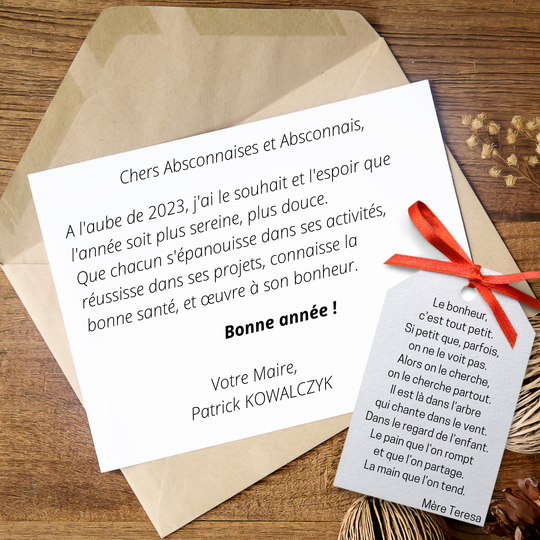 Chers Absconnaises et Absconnais,
A l'aube de 2023, j'ai le souhait et l'espoir que
l'année soit plus sereine, plus douce.
Que chacun s'épanouisse dans ses activités,
réussisse dans ses projets, connaisse la
bonne santé, et œuvre à son bonheur.
Bonne année !
Votre Maire,
Patrick KOWALCZYK
Le bonheur,
c'est tout petit.
Si petit que, parfois,
on ne le voit pas.
Alors on le cherche,
on le cherche partout.
Il est là dans l'arbre
qui chante dans le vent.
Dans le regard de l'enfant.
Le pain que l'on rompt
et que l'on partage.
La main que l'on tend.
Mère Teresa